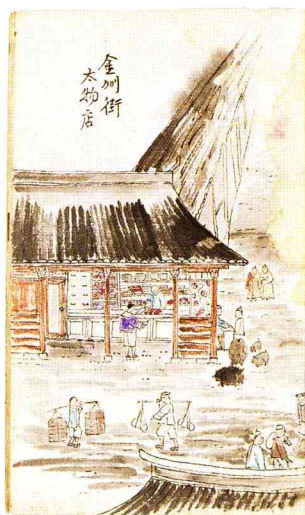 金州街
太物店